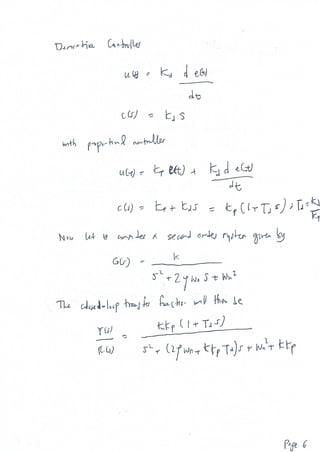 Derivative Controller
u(t) = Kd d e(t) / dt
C(s) = Kd S
with proportional controller
u(t) = Kp e(t) + Kd d e(t) / dt
C(s) = Kp + Kd S = Kp (1 + Td s) ; Td = Kd / Kp
Now let us consider a second order system given by
G(s) = K / S² + 2 ζ Wn S + Wn²
The closed-loop transfer function will then be
Y(s) / R(s) = KKp (1 + Td S) / S² + (2ζ Wn + KKp Td) S + Wn² + KKp
Page 6